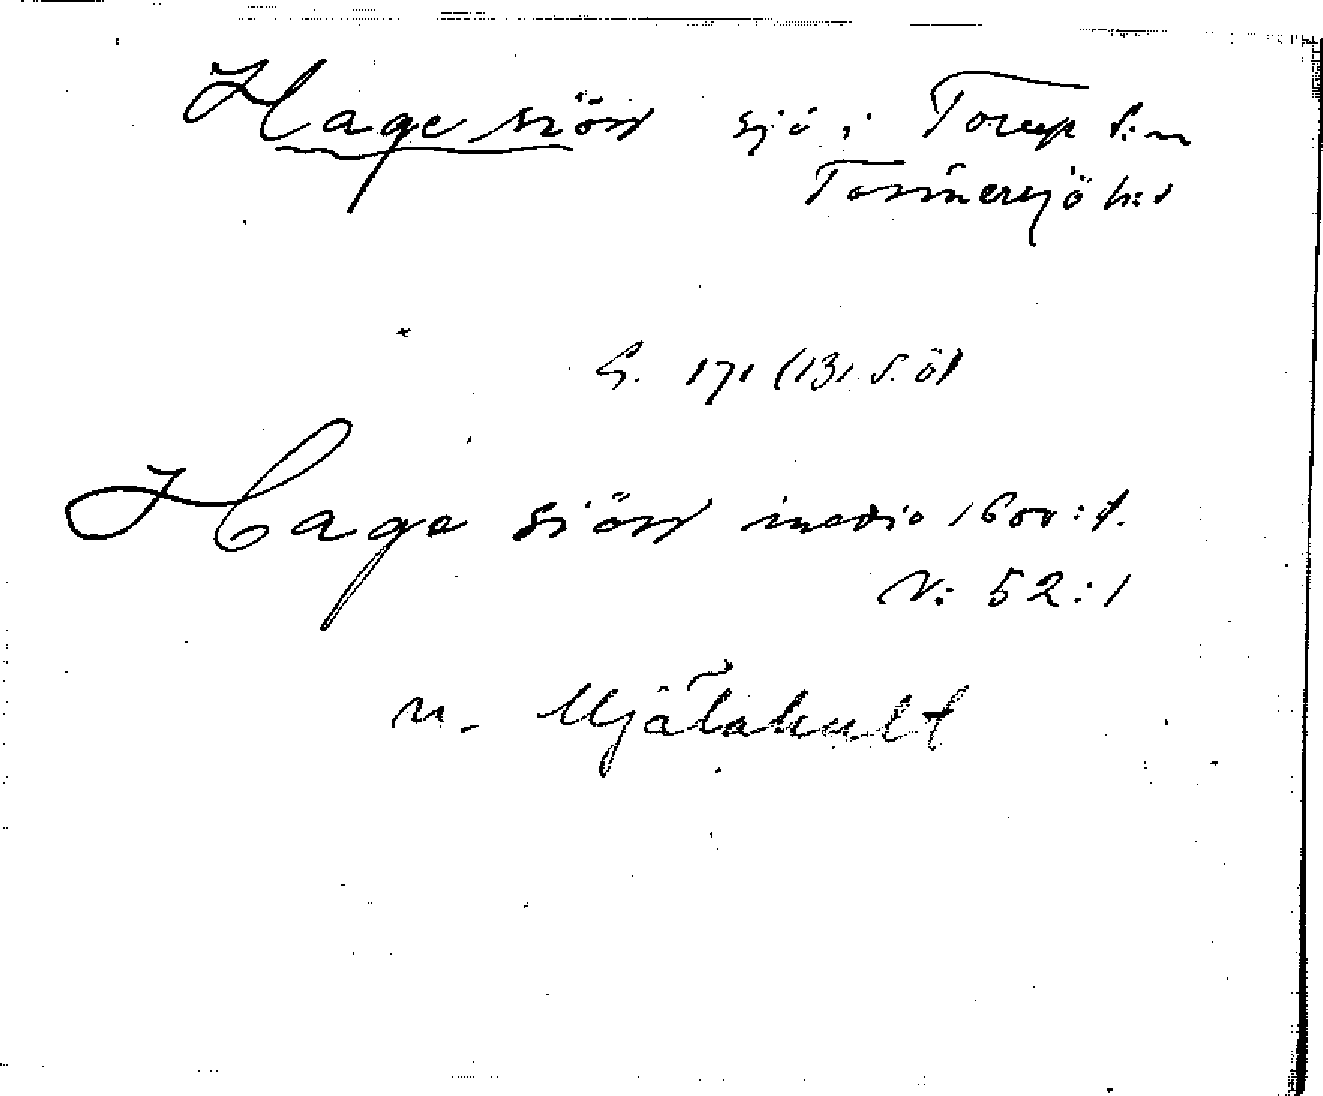 Hage siön sjö i Torup s:n
Tönnersjö h:d
G. 171 (131 S. Ö)
Hage siön medio 1600:t.
N: 52:1
n. Mjälahult